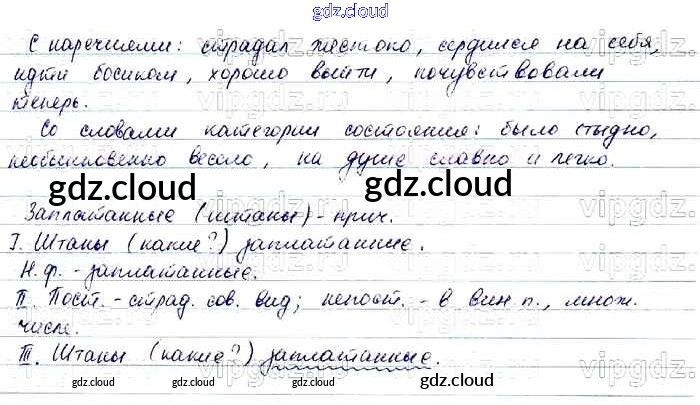 gdz.cloud
С наречиями: страдал жестоко, сердился на себя,
идти босиком, хорошо выйти, почувствовали
теперь.
Со словами категории состояния: было стыдно,
необыкновенно весело, на душе славно и легко.
gdz.cloud gdz.cloud
Заплатанные (штаны) - прич.
I. Штаны (какие?) заплатанные.
Н.ф. - заплатанные.
II. Пост. - страд. сов. вид; непост. - в вин. п., множ.
числе.
III. Штаны (какие?) заплатанные.
gdz.cloud gdz.cloud gdz.cloud gdz.cloud